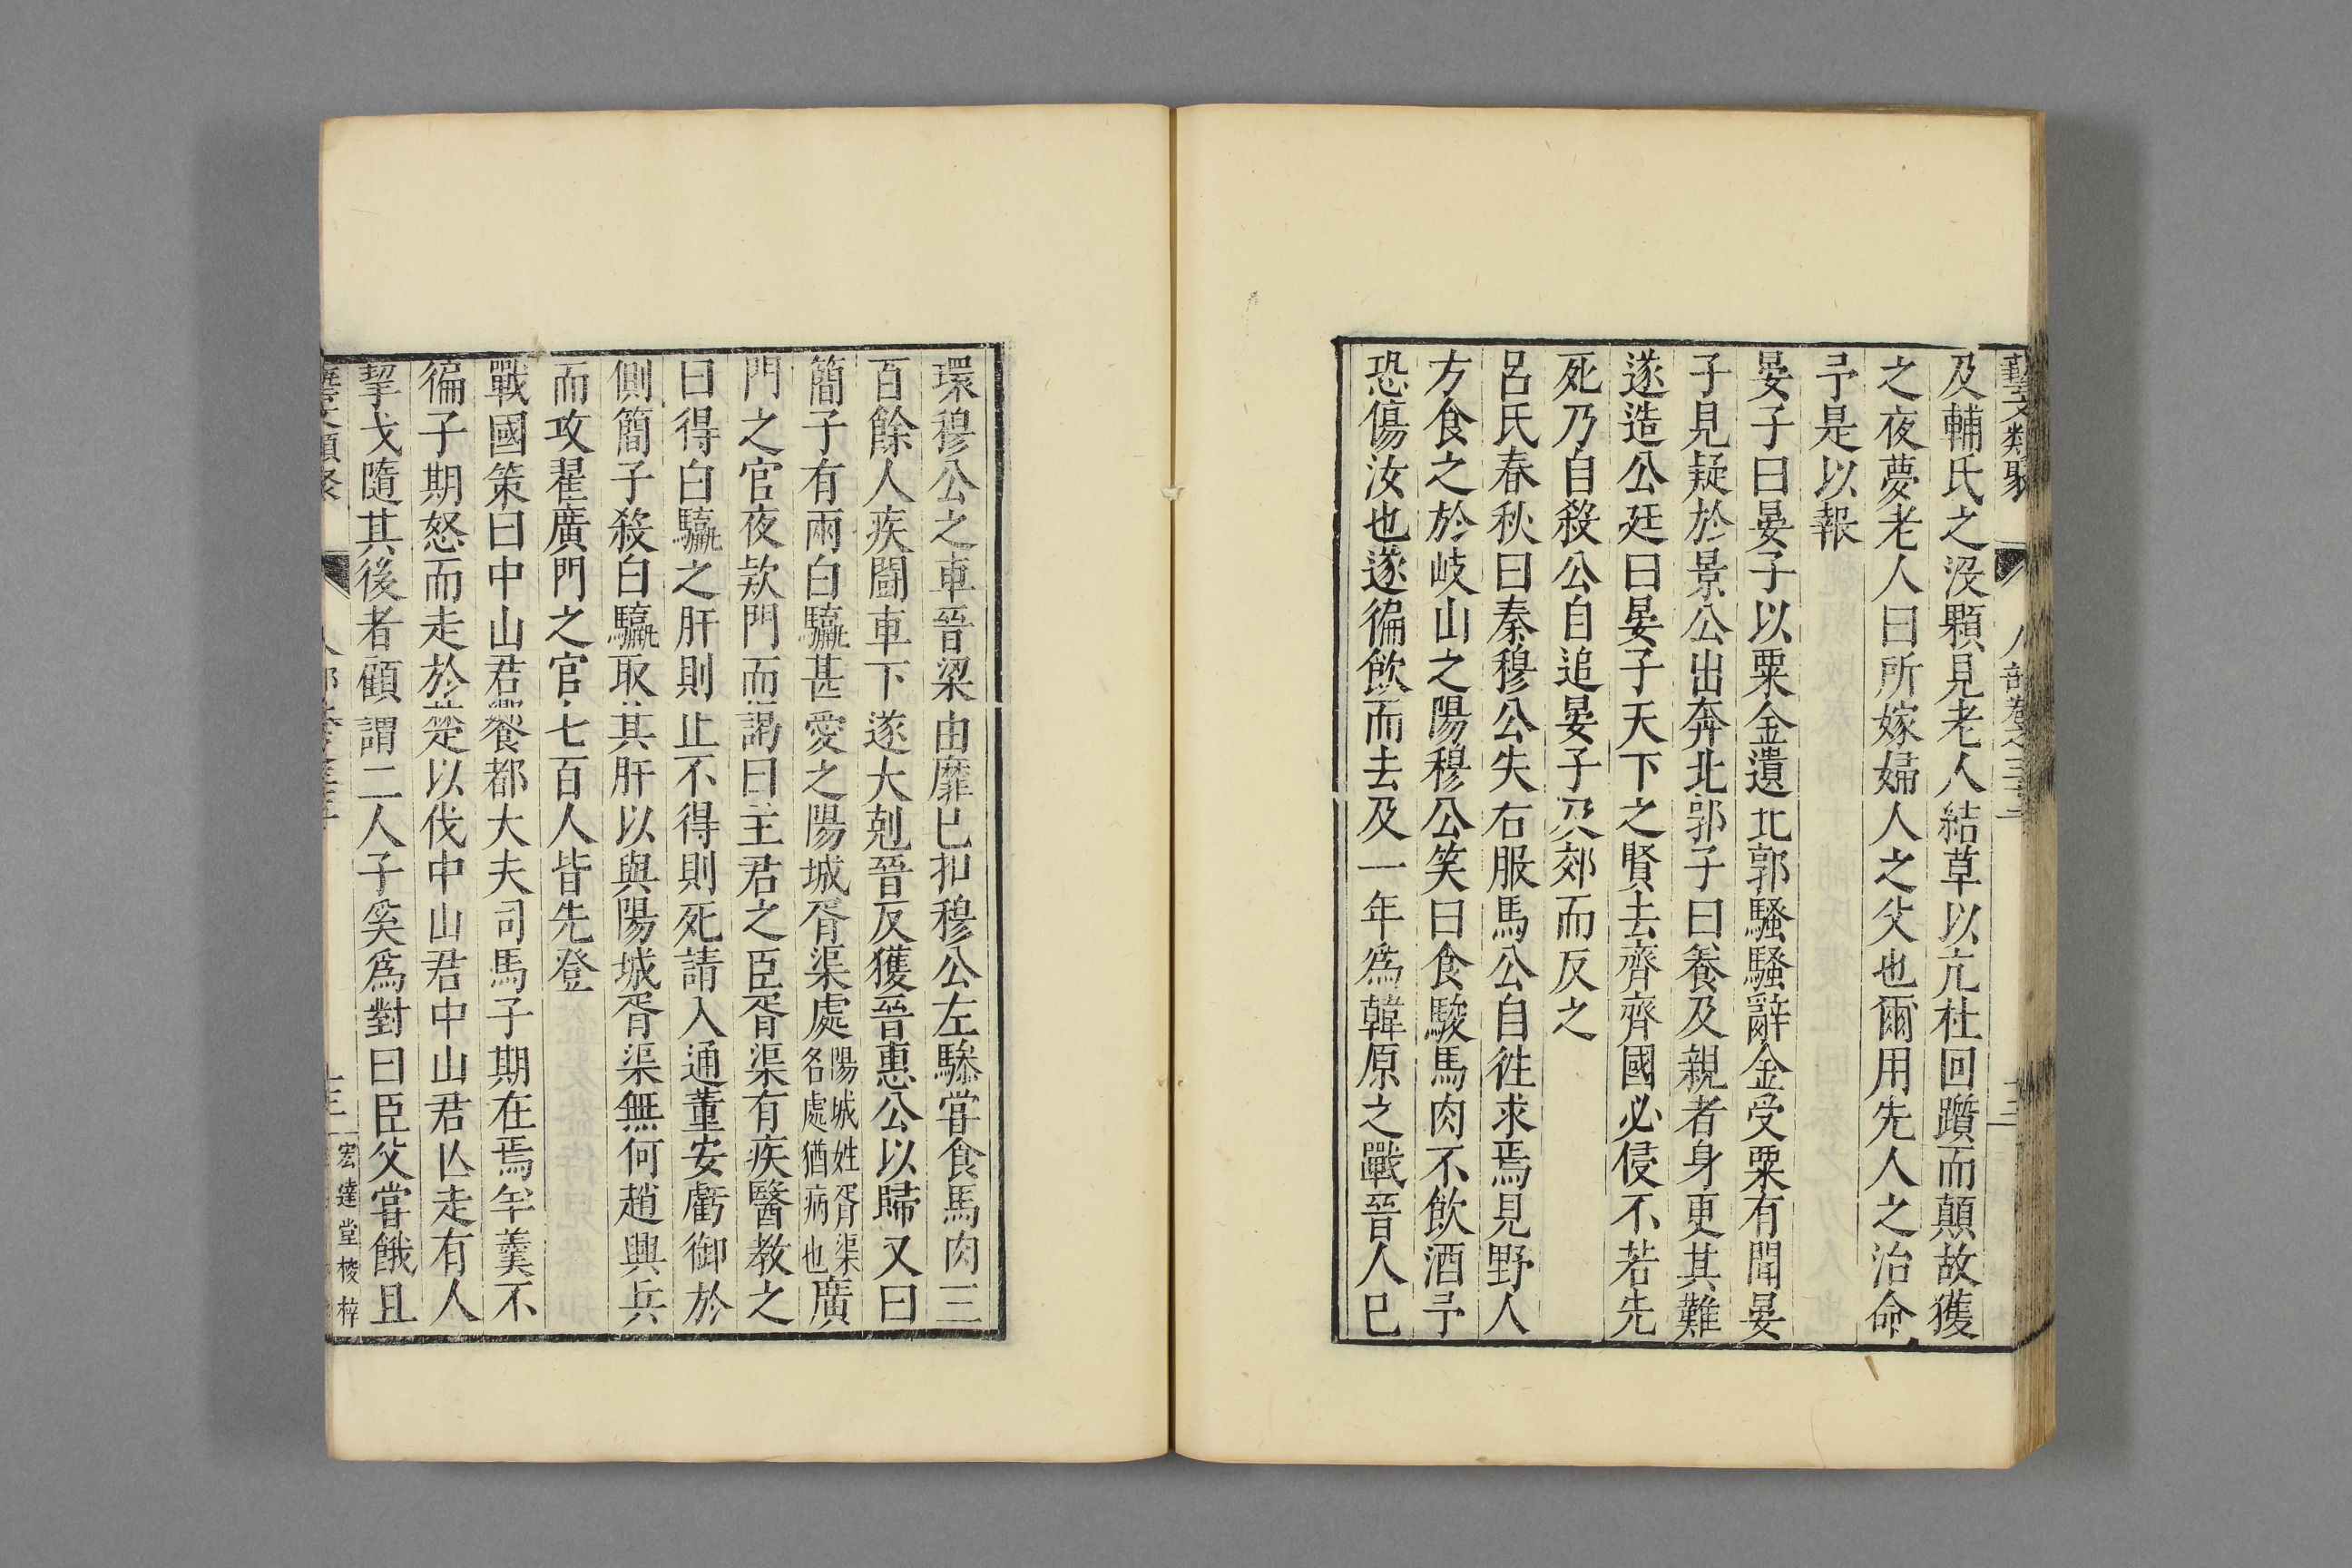 藝文類聚 人部卷之三十三 十三
及輔氏之没顆見老人結草以亢杜回躓而顛故獲
之夜夢老人曰所嫁婦人之父也爾用先人之治命
予是以報
晏子曰晏子以粟金遺北郭騷騷辭金受粟有閒晏
子見疑於景公出奔北郭子曰養及親者身更其難
遂造公廷曰晏子天下之賢去齊齊國必侵不若先
死乃自殺公自追晏子及郊而反之
呂氏春秋曰秦穆公失右服馬公自徃求焉見野人
方食之於岐山之陽穆公笑曰食駿馬肉不飲酒予
恐傷汝也遂徧飲而去及一年為韓原之戰晉人已
環穆公之車晉梁由靡已扣穆公左驂甞食馬肉三
百餘人疾鬪車下遂大剋晉反獲晉惠公以歸又曰
簡子有兩白驘甚愛之陽城胥渠處陽城姓胥渠名處猶病也廣
門之官夜欵門而謁曰主君之臣胥渠有疾醫教之
曰得白驘之肝則止不得則死請入通董安虧御於
側簡子殺白驘取其肝以與陽城胥渠無何趙興兵
而攻翟廣門之官七百人皆先登
戰國策曰中山君饗都大夫司馬子期在焉羊羹不
徧子期怒而走於楚以伐中山君中山君亾走有人
挈戈隨其後者顧謂二人子奚為對曰臣父甞餓且
藝文類聚 十三 宏達堂棱梓